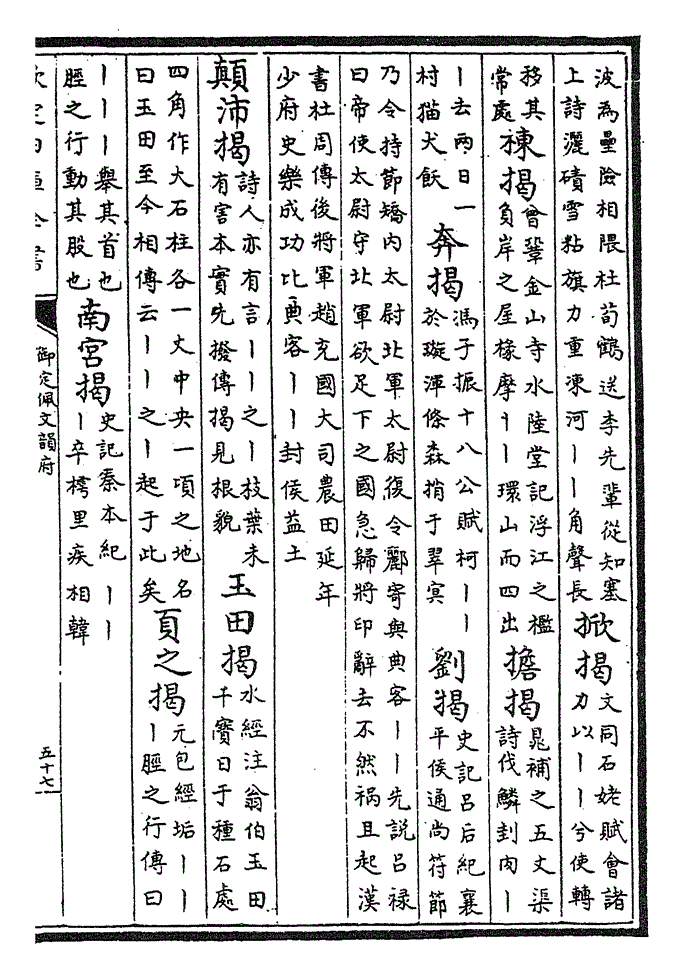 波為壘險相隈杜荀鶴送李先輩從知塞
上詩灑磧雪粘旗力重凍河丨丨角聲長
掀揭
文同石姥賦會諸
力以丨丨兮使轉
移其
常處
棟揭
曾鞏金山寺水陸堂記浮江之檻
負岸之屋椽摩丨丨環山而四出
擔揭
晁補之五丈渠
詩伐鱗刲肉丨
丨去兩日一
村猫犬飫
奔揭
馮子振十八公賦柯丨丨
於璇渾條森捎于翠冥
劉揭
史記呂后紀襄
平侯通尚符節
乃令持節矯内太尉北軍太尉復令酈寄與典客丨丨先説呂禄
曰帝使太尉守北軍欲足下之國急歸將印辭去不然禍且起漢
書杜周傳後將軍趙充國大司農田延年
少府史樂成功比典客丨丨封侯益土
顛沛揭
詩人亦有言丨丨之丨枝葉未
有害本實先撥傳揭見根貌
玉田揭
水經注翁伯玉田
千寶曰于種石處
四角作大石柱各一丈中央一項之地名
曰玉田至今相傳云丨丨之丨起于此矣
頁之揭
元包經垢丨丨
丨脛之行傳曰
丨丨丨舉其首也
脛之行動其股也
南宮揭
史記秦本紀丨丨
丨卒樗里疾相韓
欽定四庫全書
御定佩文韻府
五十七